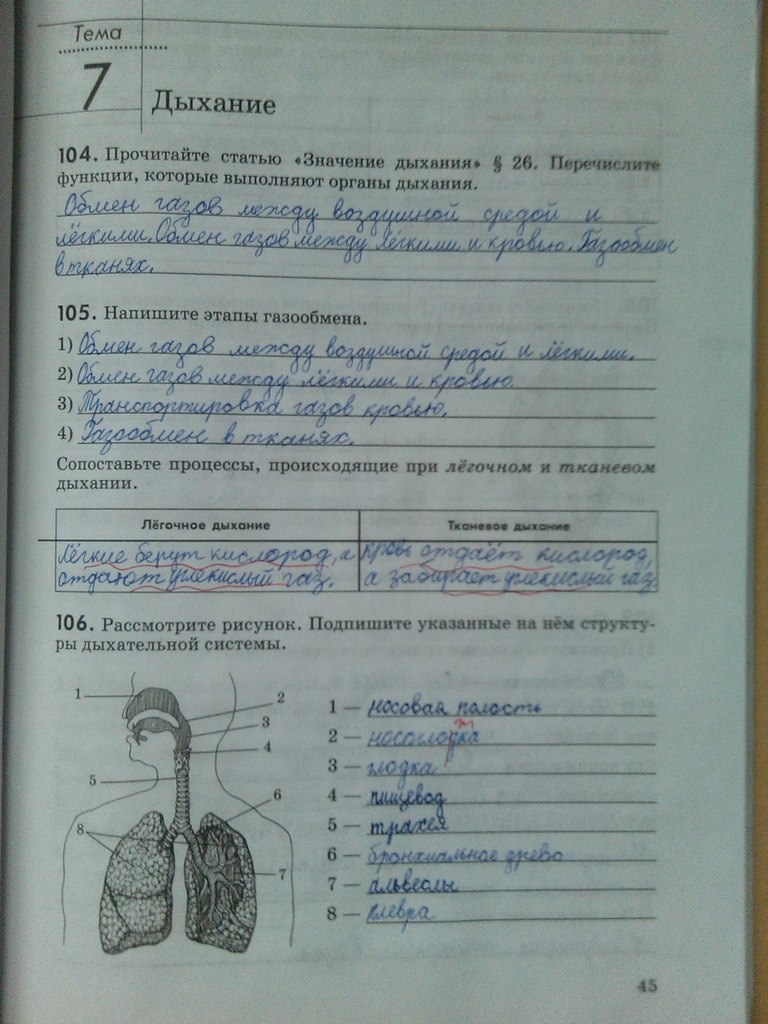 Тема
7
Дыхание
104. Прочитайте статью «Значение дыхания» § 26. Перечислите
функции, которые выполняют органы дыхания.
Обмен газов между воздушной средой и
лёгкими. Обмен газов между лёгкими и кровью. Газообмен
в тканях.
105. Напишите этапы газообмена.
1) Обмен газов между воздушной средой и лёгкими.
2) Обмен газов между лёгкими и кровью.
3) Транспортировка газов кровью.
4) Газообмен в тканях.
Сопоставьте процессы, происходящие при лёгочном и тканевом
дыхании.
Лёгочное дыхание Тканевое дыхание
Лёгкие берут кислород, а кровь отдаёт кислород,
отдают углекислый газ. а забирает углекислый газ.
106. Рассмотрите рисунок. Подпишите указанные на нём структу-
ры дыхательной системы.
1
2
3
4
5
6
7
8
1 — носовая полость
т
2 — носоглодка
3 — глодка
4 — пищевод
5 — трахея
6 — бронхиальное древо
7 — альвеолы
8 — плевра
45